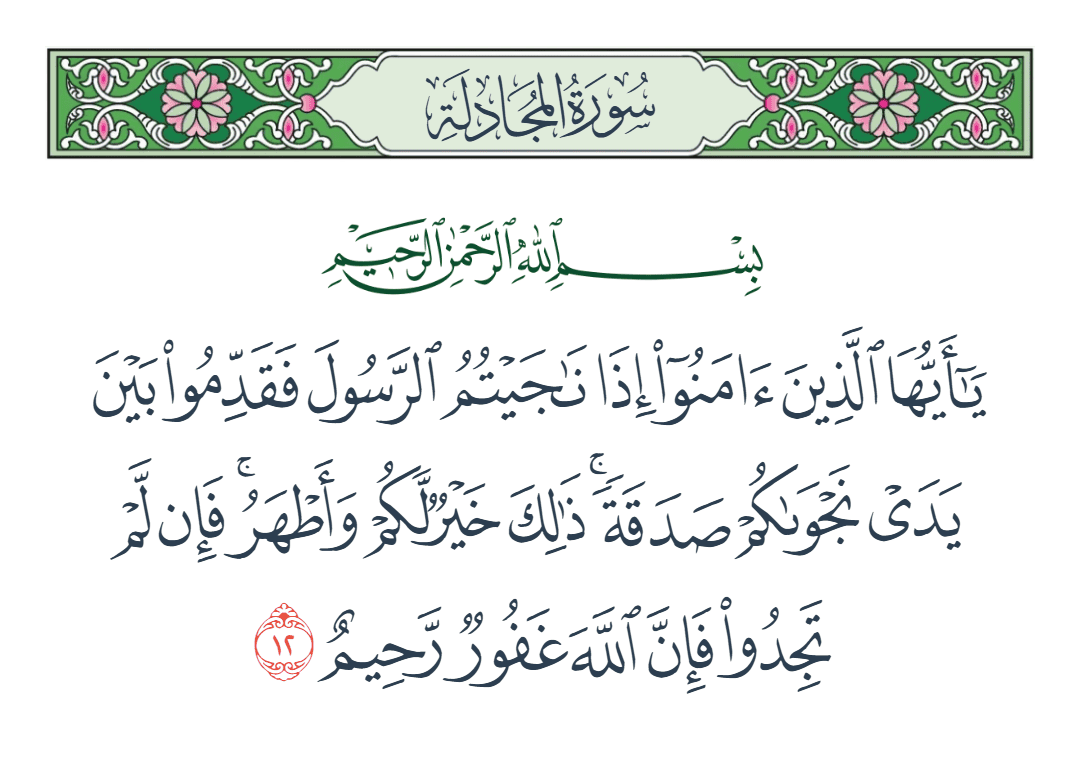 سُورَةُ المُجَادلَةِ
بِسْمِ ٱللَّهِ ٱلرَّحْمَٰنِ ٱلرَّحِيمِ
يَـٰٓأَيُّهَا ٱلَّذِينَ ءَامَنُوٓا۟ إِذَا نَـٰجَيْتُمُ ٱلرَّسُولَ فَقَدِّمُوا۟ بَيْنَ
يَدَىْ نَجْوَىٰكُمْ صَدَقَةًۭ ۚ ذَٰلِكَ خَيْرٌۭ لَّكُمْ وَأَطْهَرُ ۚ فَإِن لَّمْ
تَجِدُوا۟ فَإِنَّ ٱللَّهَ غَفُورٌۭ رَّحِيمٌ ١٢